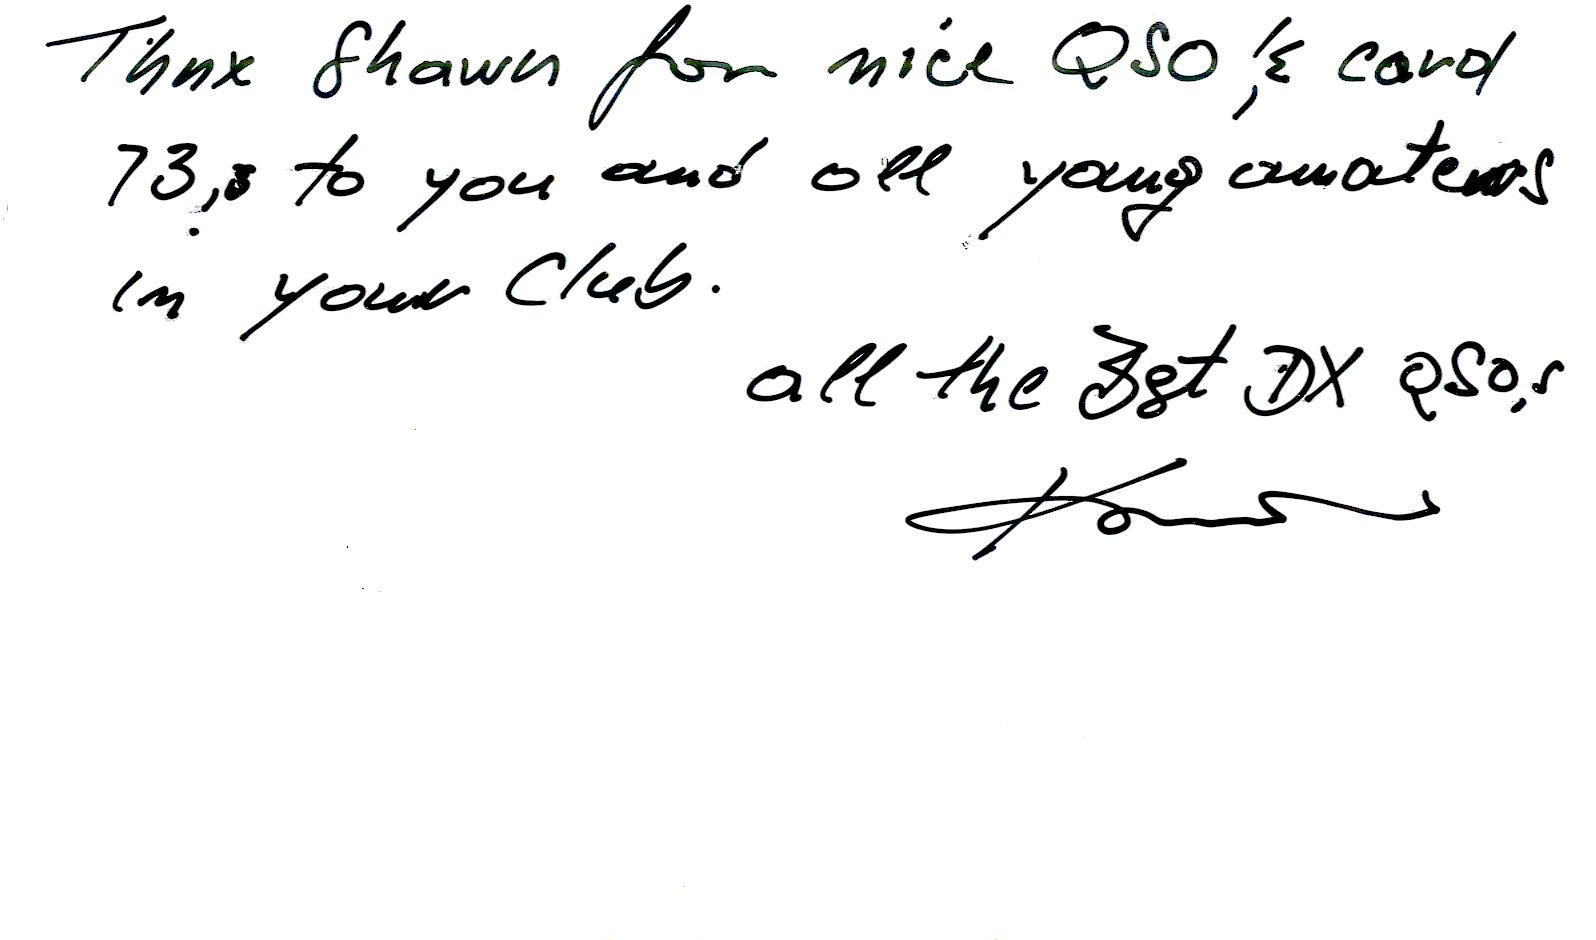 Thnx Shawn for nice QSO, & card
73,s to you and all young amateurs
in your Club.
all the Bst DX QSO,s